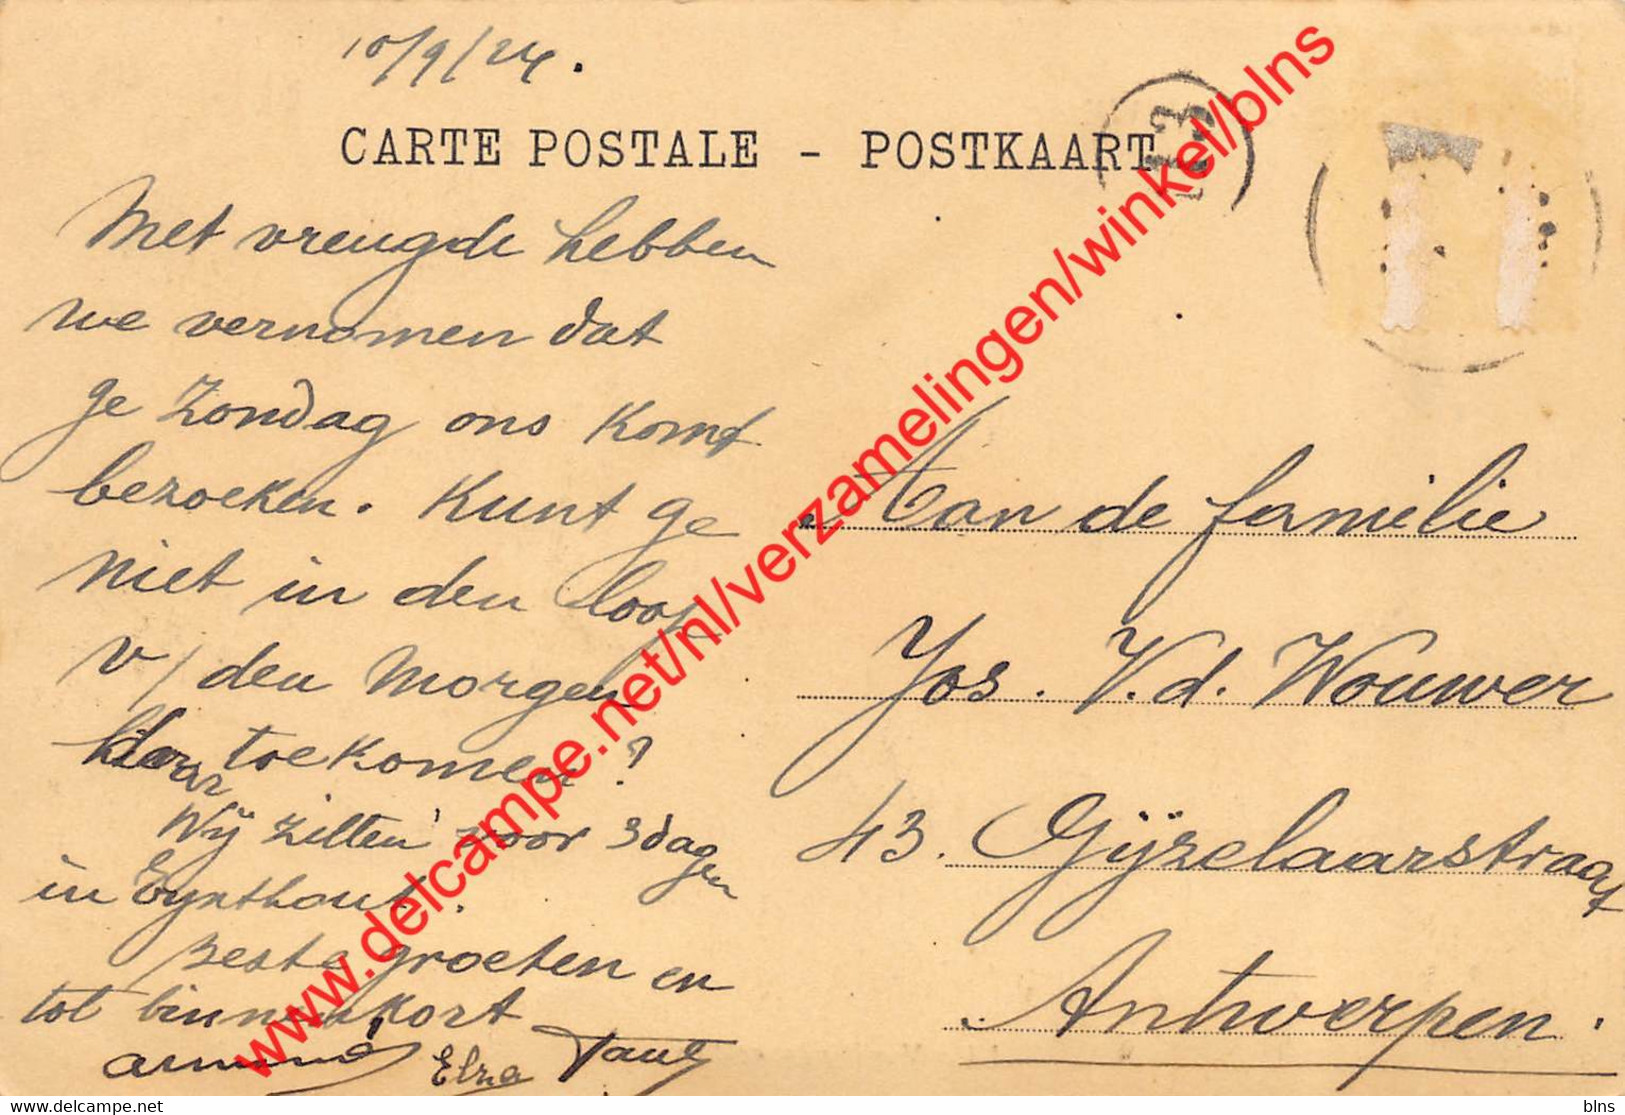 10/9/24.
CARTE POSTALE - POSTKAART
Met vreugde hebben
we vernomen dat
ge Zondag ons komt
bezoeken. Kunt ge
niet in den loop
v/den morgen
toekomen?
Wij zitten voor 3 dagen
in Eynthout.
Beste groeten en
tot binnenkort
Armand Elza
Aan de familie
Jos. V.d. Wouwer
43. Gijzelaarstraat
Antwerpen.
www.delcampe.net/nl/verzamelingen/winkel/blns
www.delcampe.net
blns